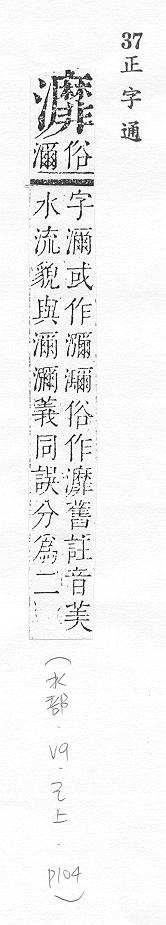 37 正字通
灖
俗
字濔或作瀰俗作灖舊註音美
濔
水流貌與濔瀰義同誤分爲二
(水部．V9．巳上．p104)